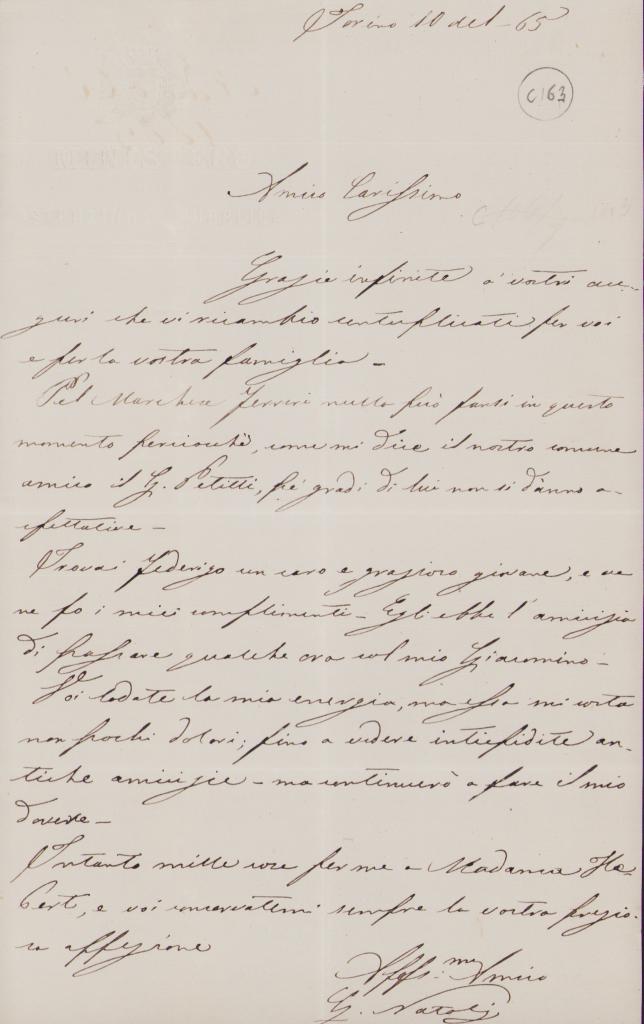 Torino 10 del 65
C163
Amico Carissimo
Grazie infinite a' vostri au-
guri che vi ricambio centuplicati per voi
e per la vostra famiglia -
Pel Marchese Ferreri nulla può farsi in questo
momento perciocchè, come mi dice il nostro comune
amico il G. Petitti, pe' gradi di lui non si dànno a-
spettative -
Trovai Federigo un caro e grazioso giovane, e ve
ne fo i miei complimenti - Egli ebbe l'amicizia
di passare qualche ora col mio Giacomino -
Voi lodate la mia energia, ma essa mi costa
non pochi dolori; fino a vedere intiepidite an-
tiche amicizie - ma continuerò a fare il mio
dovere -
Intanto mille cose per me a Madama
e voi conservatemi sempre la vostra prezio-
sa affezione
Affss.mo Amico
G. Natoli